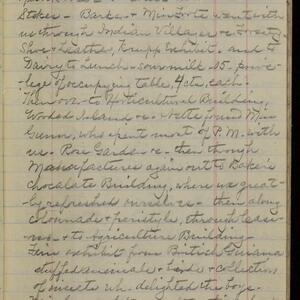 Stoker - Barker + Miss Forte went with
us through Indian Village + c. +
Shoe + Leather, Krupp exhibit. and to
Dairy to lunch - sour milk 15. privi-
lege of occupying table, 4 cts. each.
Then over to Horticultural Building,
Wooded Island + c. + Miss
Gunn, who spent most of P.M. with
us. Rose Garden + c. then through
Manufactures again out to Baker's
Chocolate Building, where we great-
ly refreshed ourselves - then along
colonnade + peristyle, through
+ to Agriculture Building -
exhibit from British Guiana
stuffed animals + birds + collection
of insects wh. delighted the boys.